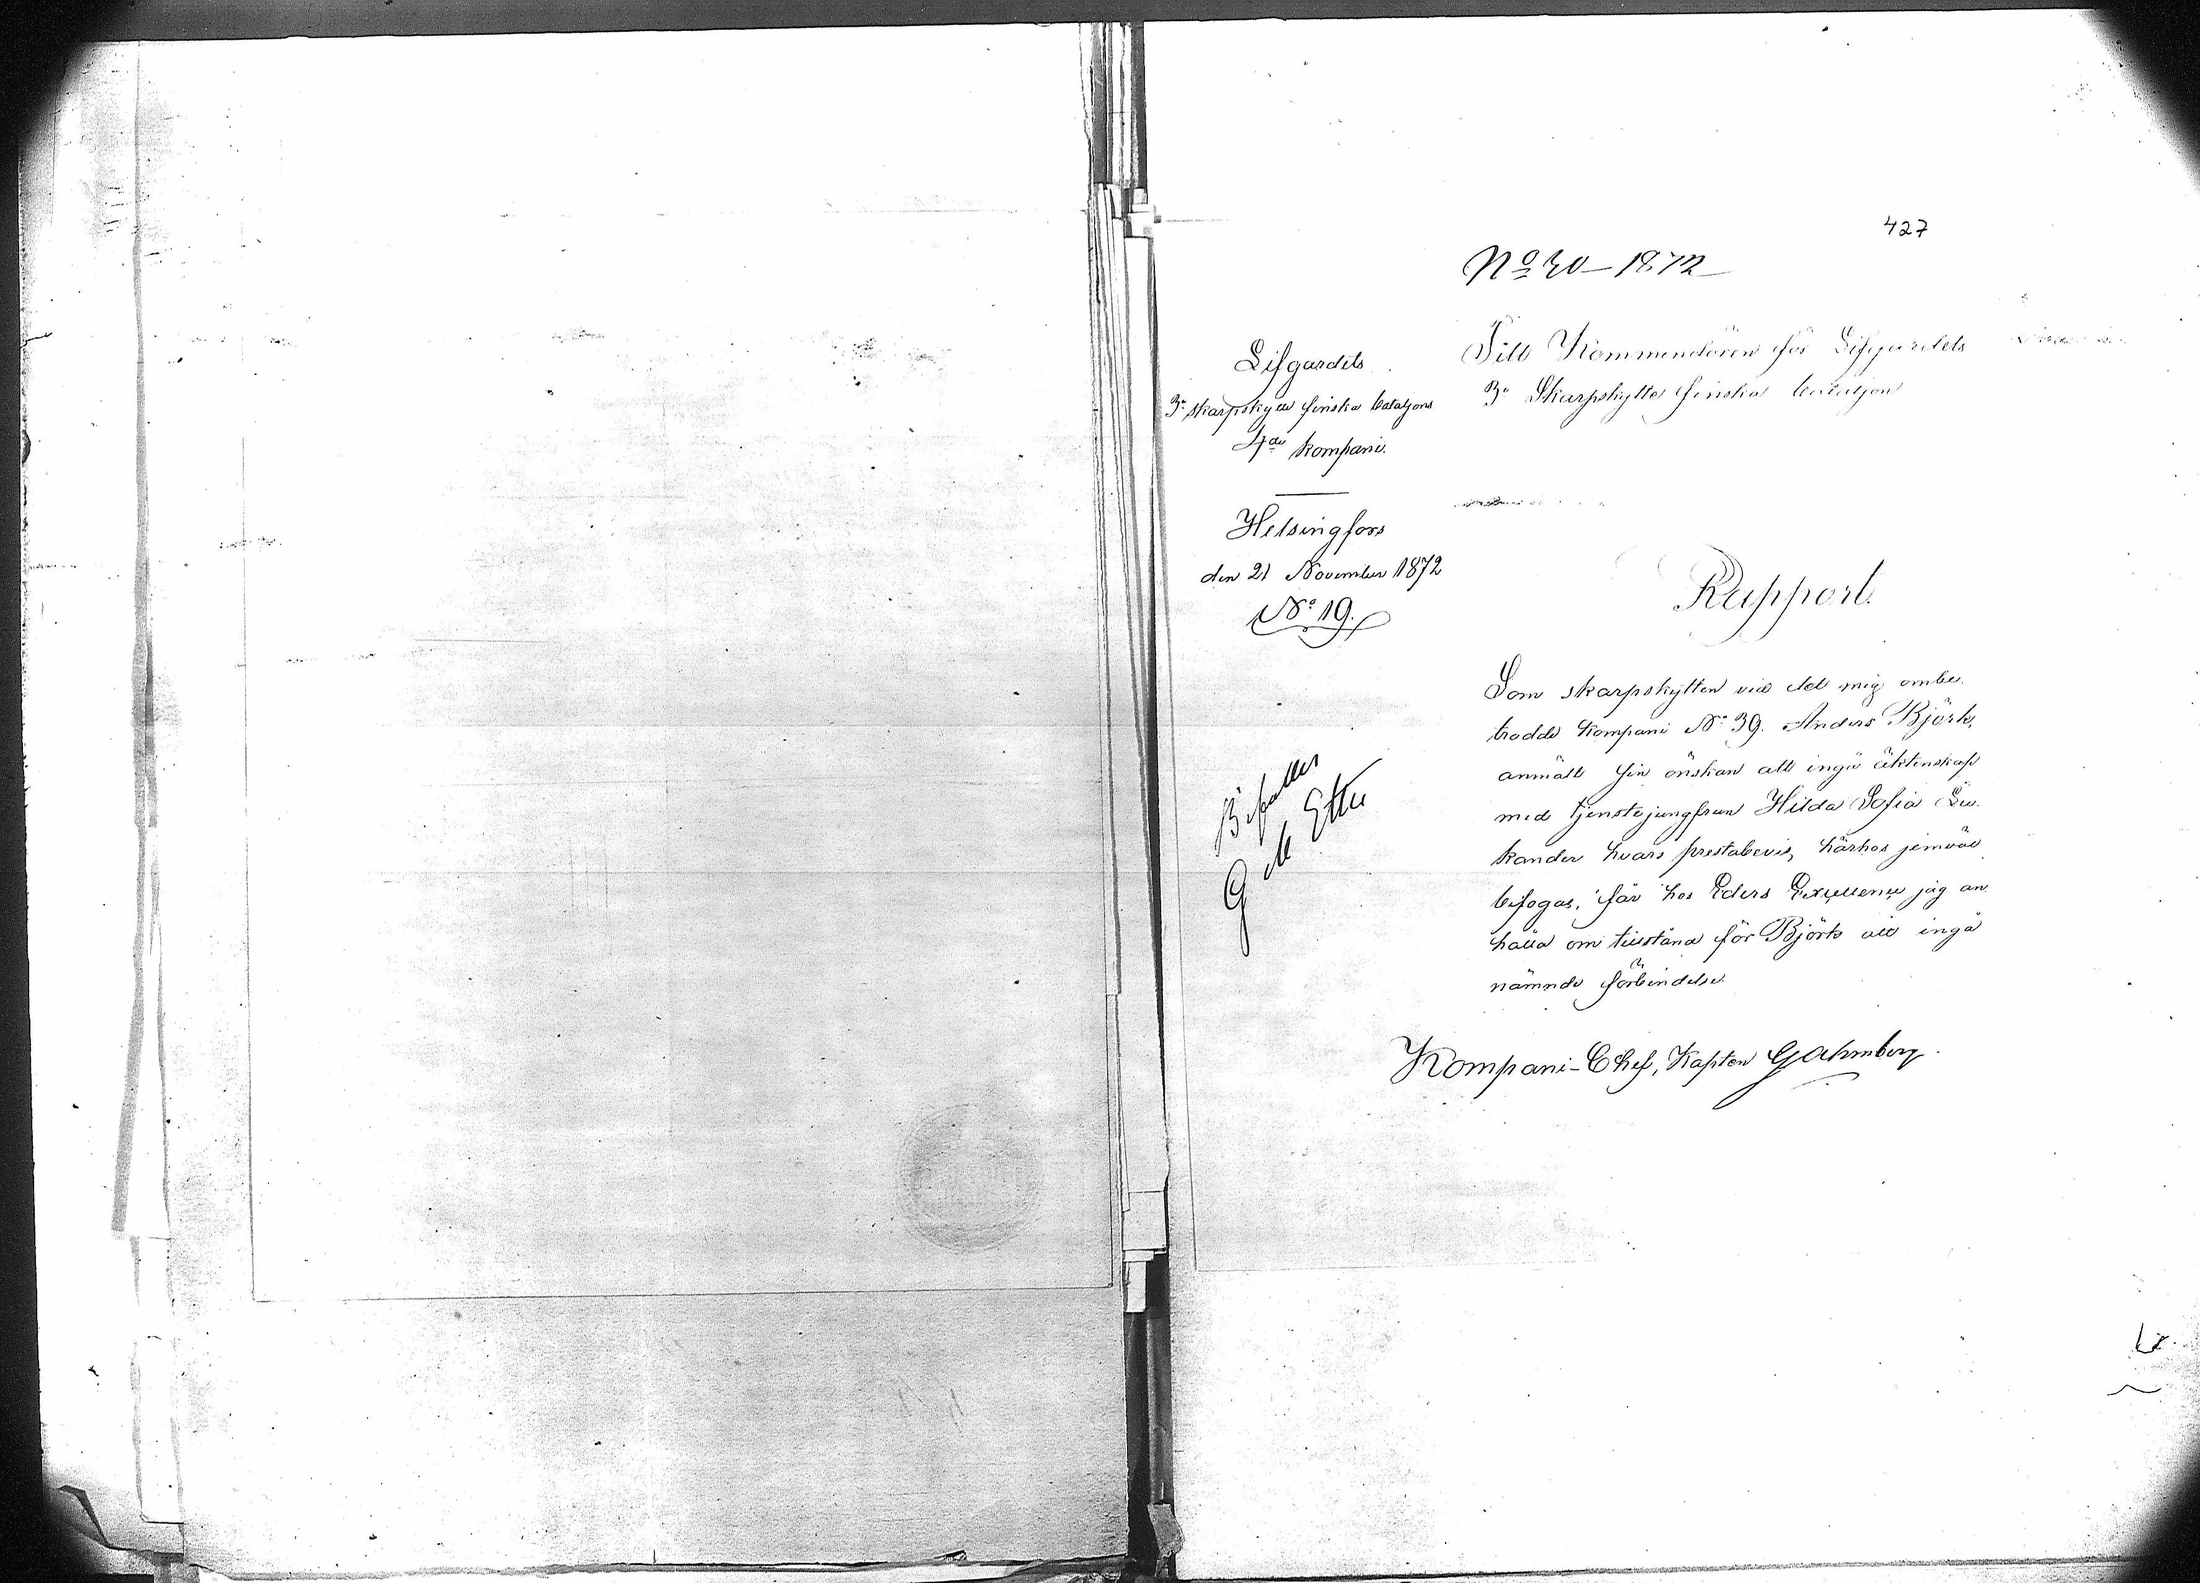 427
No 30 – 1872
Lifgardets
3e skarpskytte finska bataljons
4de kompani.
Helsingfors
den 21 November 1872
No 19.
Till Kommendören för Lifgardets
3e Skarpskytte finska bataljon
Rapport.
Som skarpskytten vid det mig ombe-
trodde kompani No 39. Anders Björk,
anmält sin önskan att ingå äktenskap
med tjenstejungfrun Hilda Sofia
kander hvars prestabevis, härhos jemväl
bifogas, får hos Eders Excellence jag an-
hålla om tillstånd för Björk att ingå
nämnde förbindelse.
Kompani-Chef, Kapten Gahmberg.
Bifalles
G